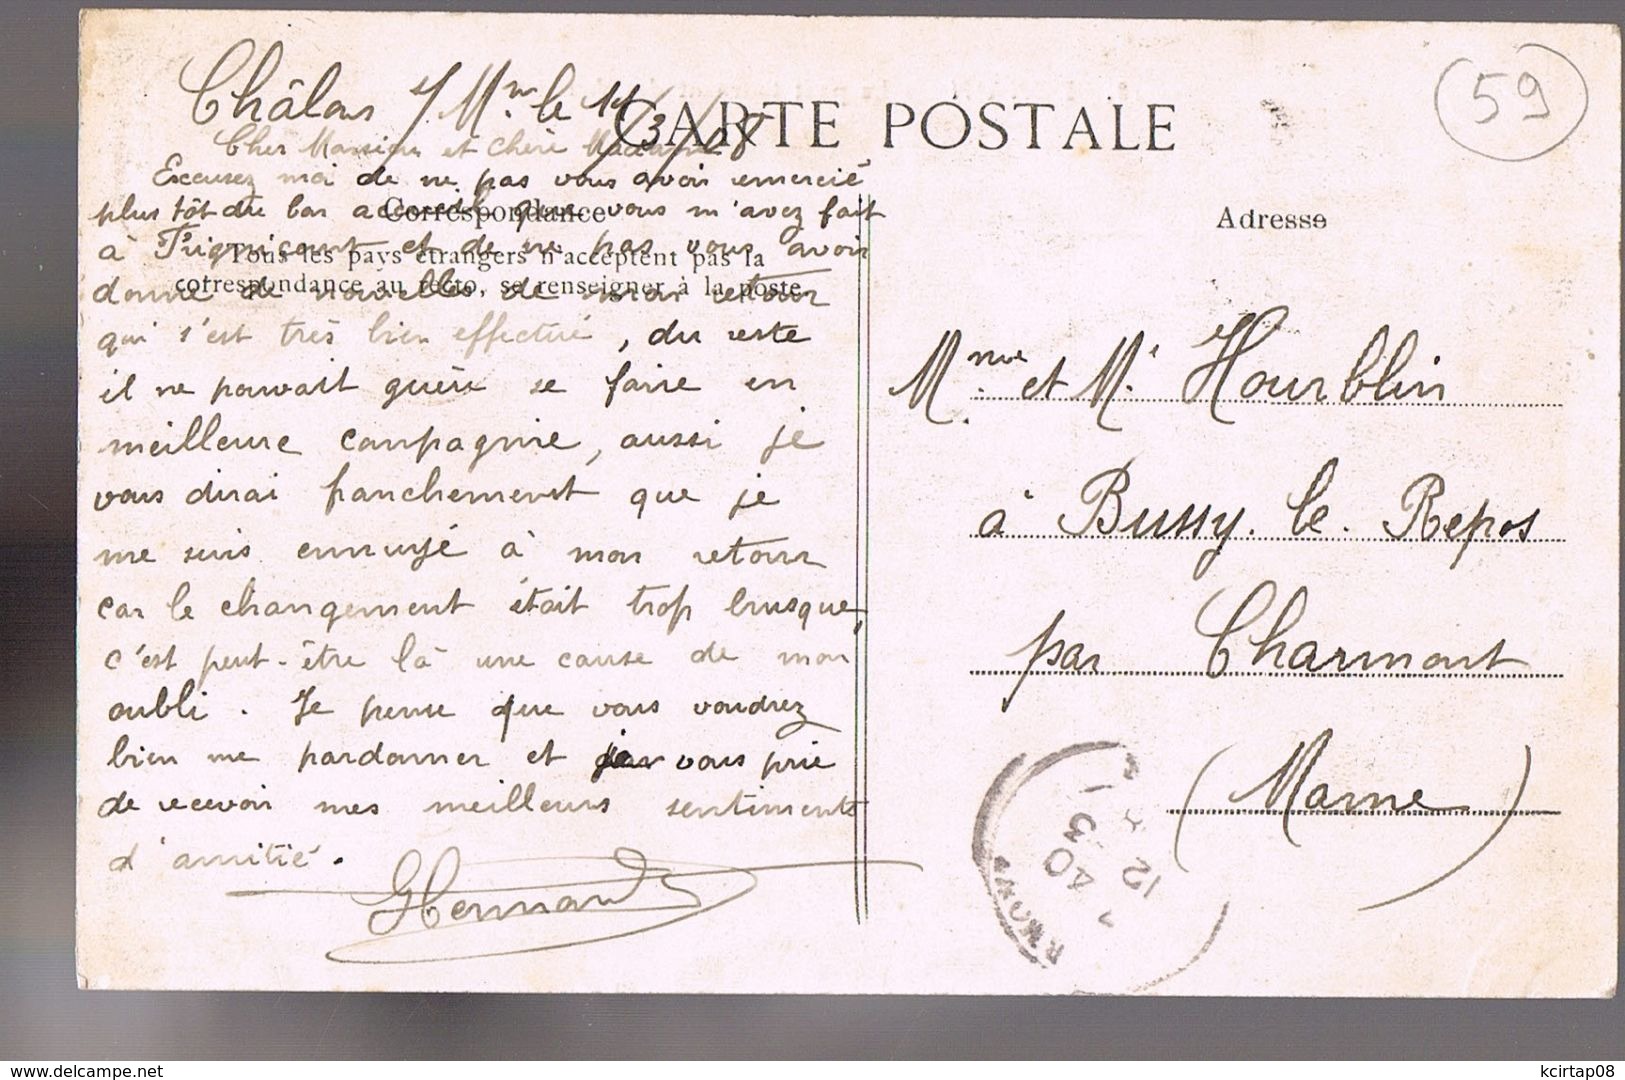 Châlons s/ Mne le 11/3/08
CARTE POSTALE
59
Cher Monsieur et chère Madame
Excusez moi de ne pas vous avoir remercié
plus tôt du bon accueil que vous m'avez fait
à et de ne pas vous avoir
donné de nouvelles de mon retour
qui s'est très bien effectué, du reste
il ne pouvait guère se faire en
meilleure compagnie, aussi je
vous dirai franchement que je
me suis ennuyé à mon retour
car le changement était trop brusque,
c'est peut-être là une cause de mon
oubli. Je pense que vous voudrez
bien me pardonner et je vous prie
de recevoir mes meilleurs sentiments
d'amitié.
GHermand
Correspondance
Tous les pays étrangers n'acceptent pas la
correspondance au recto, se renseigner à la poste
Adresse
Mme et Mr Hourblin
à Bussy. le. Repos
par Charmont
(Marne)
7 40
12 - 3
http://www.delcampe.net
kcirtap08